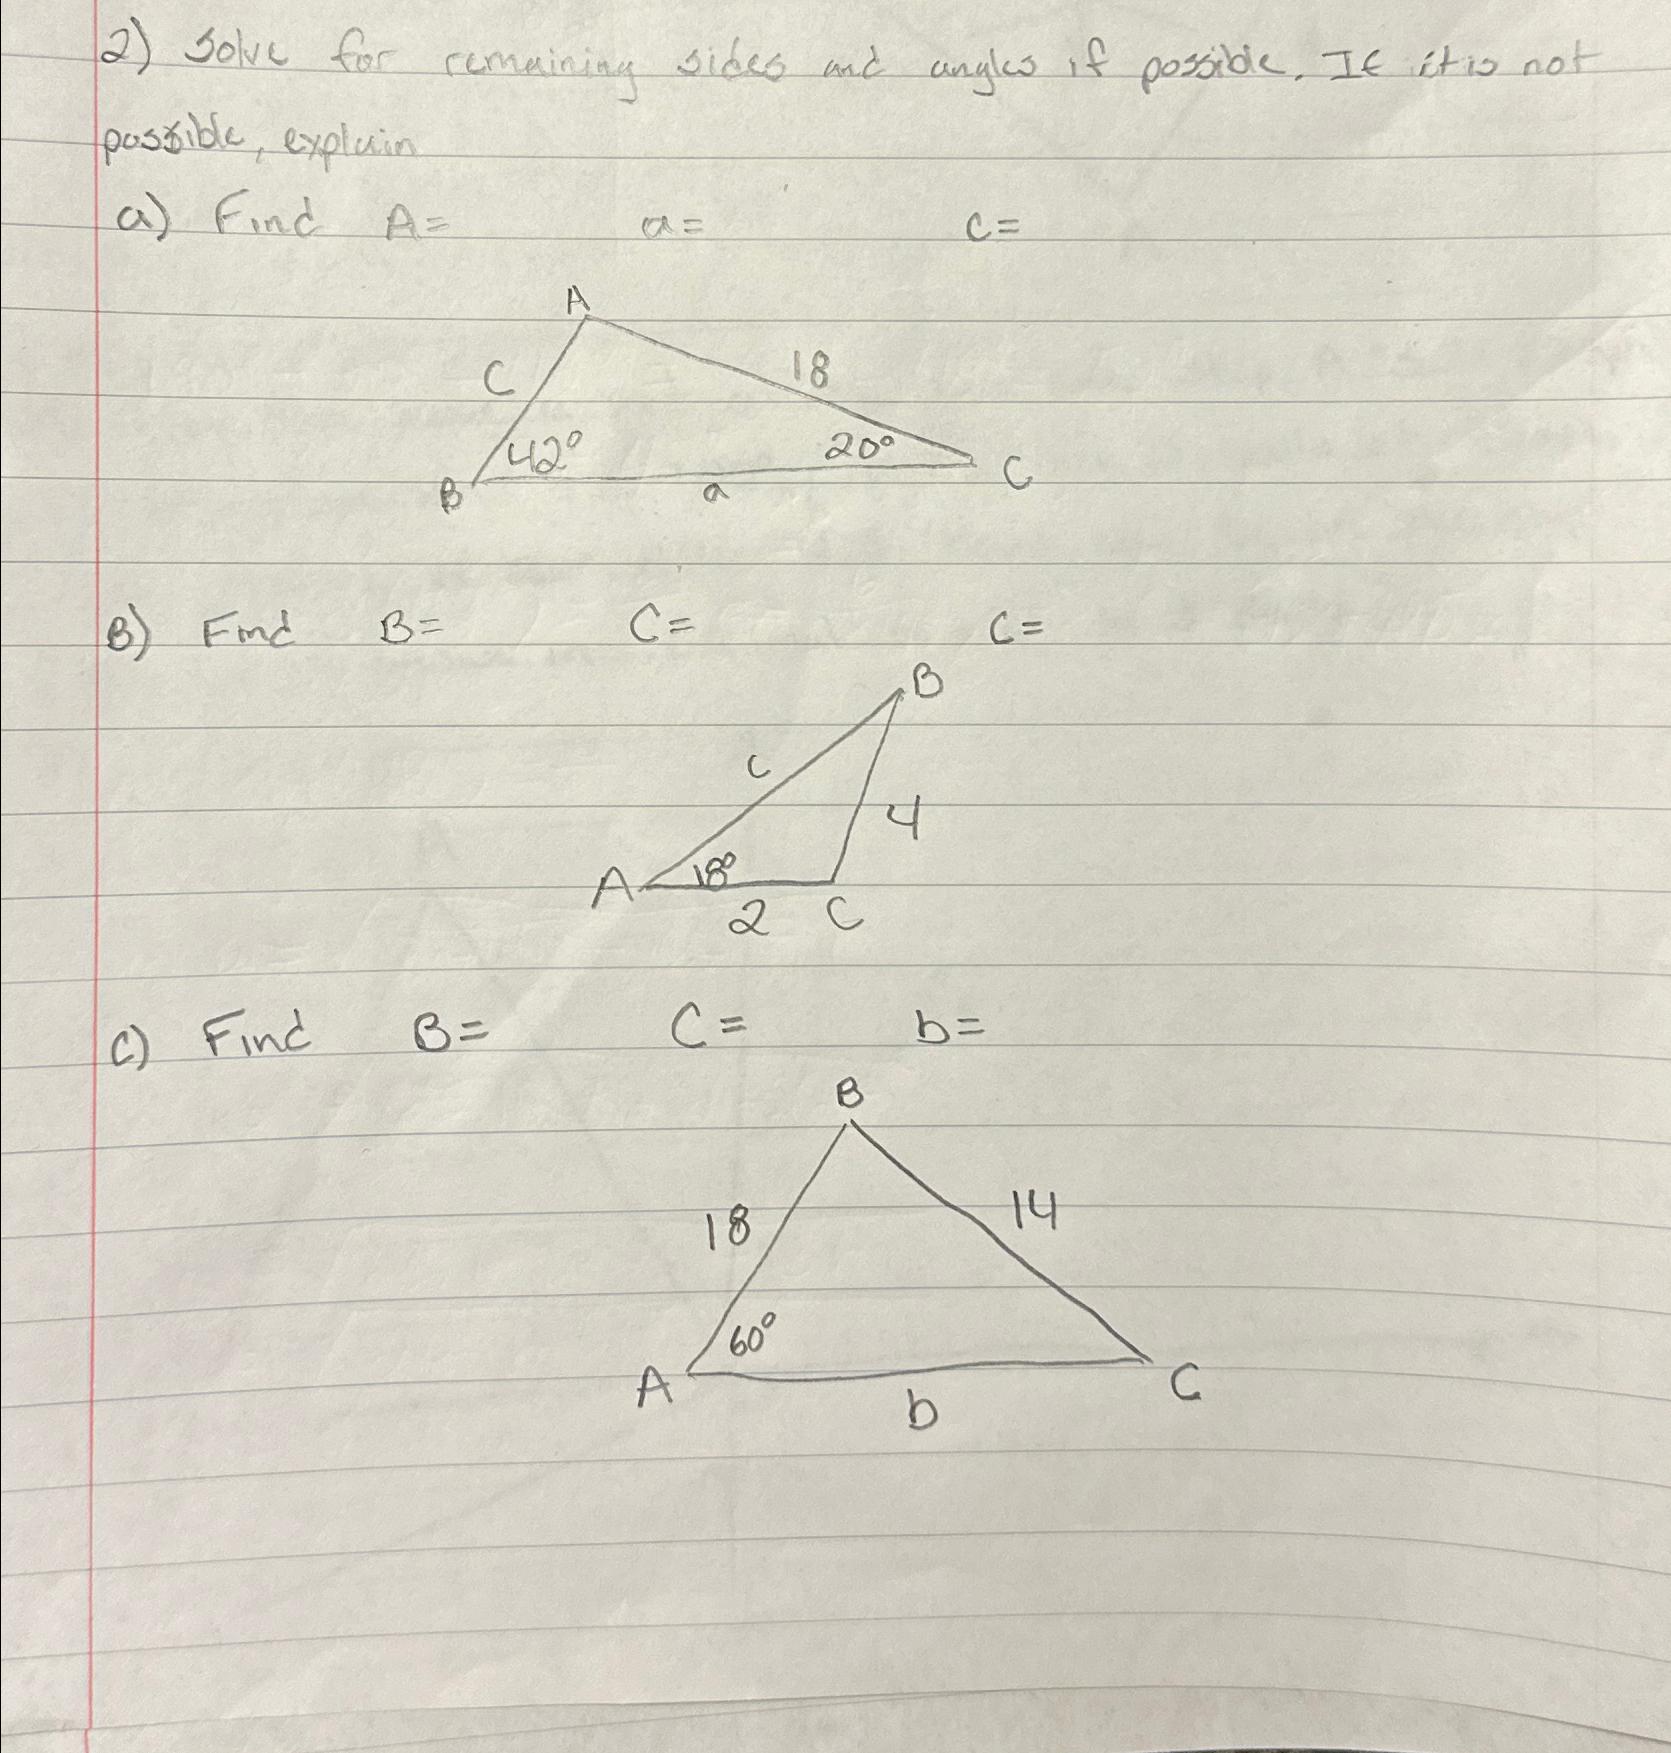 2) Solve for remaining sides and angles if possible. If it is not
possible, explain
a) Find A= a= c=
A
C 18
42° 20°
B a C
B) Find B= C= c=
B
c
4
A 18°
2 C
C) Find B= C= b=
B
18 14
60°
A C
b